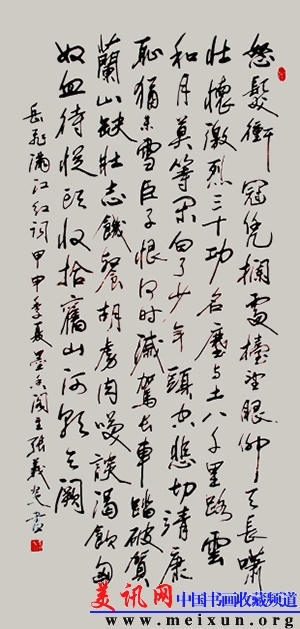 怒髮衝冠凭欄處檯望眼仰天長嘯
壯懷激烈三十功名塵与土八千里路雲
和月莫等闲白了少年頭空悲切靖康
恥猶未雪臣子恨何时滅駕长車踏破賀
蘭山缺壯志饑餐胡虜肉笑談渴飲匈
奴血待從头收拾舊山河朝天闕
岳飛滿江红词甲申季夏墨阁主張義書
美讯网中国书画收藏频道
www.meixun.org